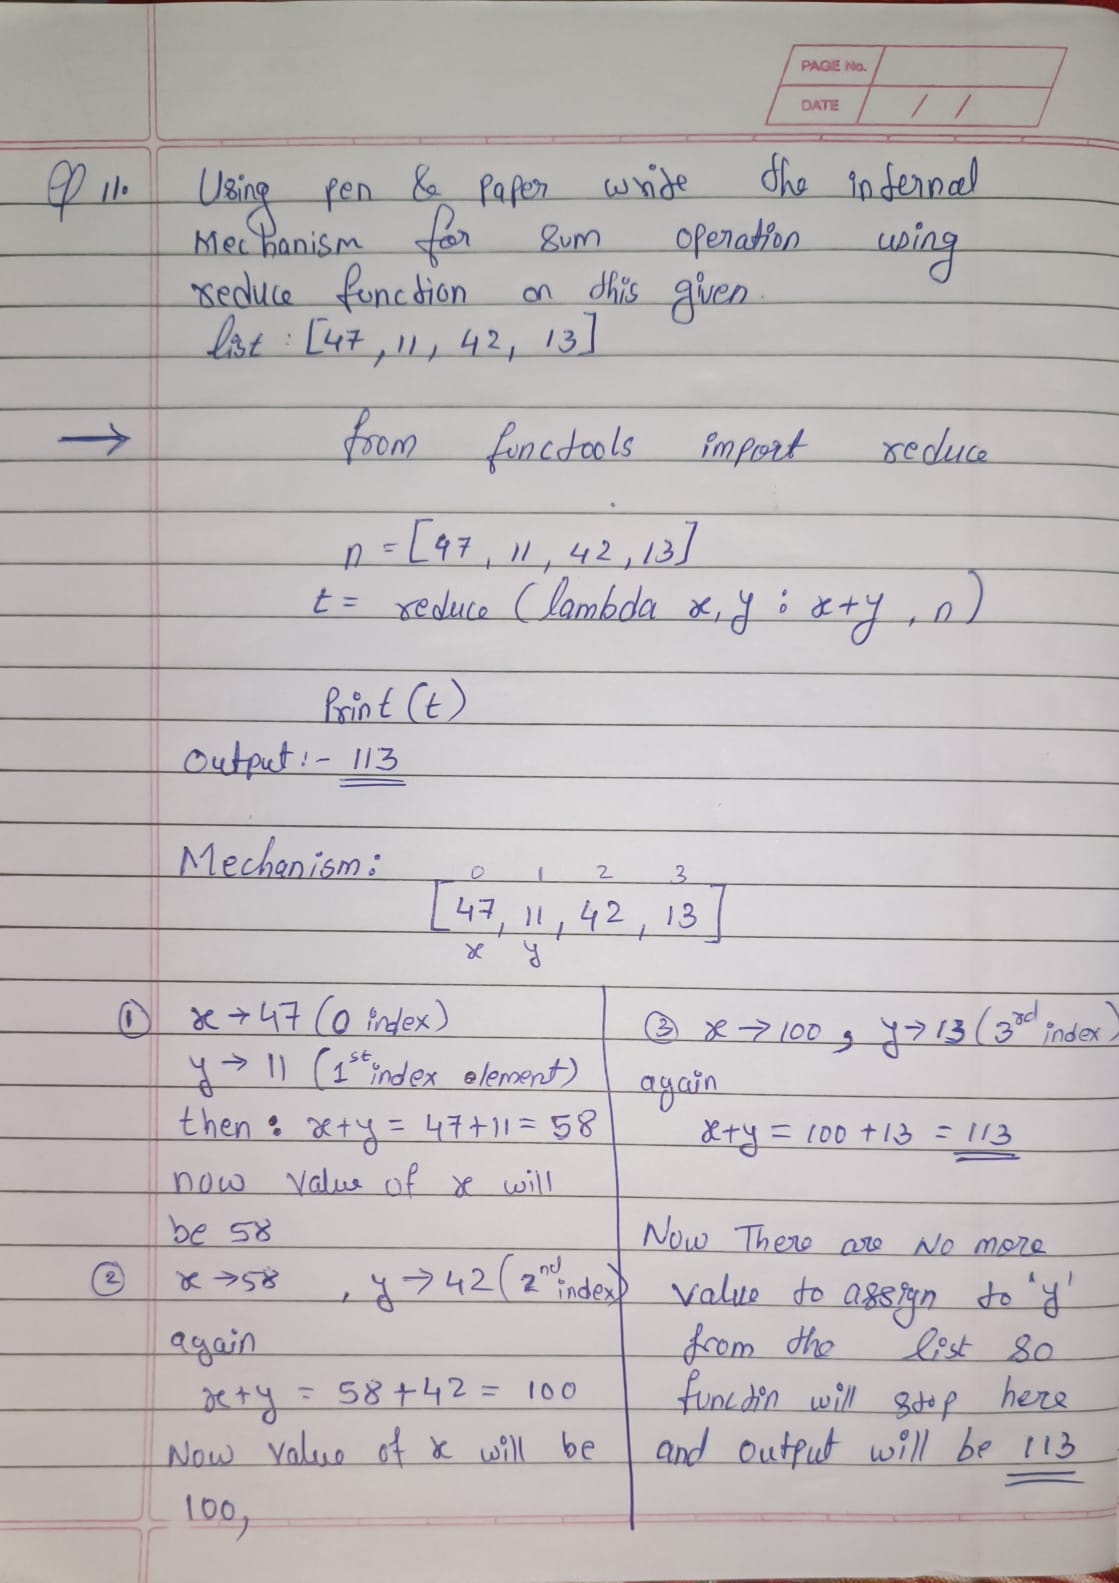 PAGE No.
DATE / /
Q 11. Using pen & paper write the internal
Mechanism for sum operation using
reduce function on this given.
list : [47, 11, 42, 13]
→ from functools import reduce
n = [47, 11, 42, 13]
t = reduce (lambda x, y : x+y, n)
Print (t)
Output :- 113
Mechanism :
0 1 2 3
[47, 11, 42, 13]
x y
① x → 47 (0 index)
y → 11 (1st index element)
then : x+y = 47+11 = 58
now value of x will
be 58
② x → 58 , y → 42 (2nd index)
again
x+y = 58+42 = 100
Now value of x will be
100,
③ x → 100 , y → 13 (3rd index)
again
x+y = 100 + 13 = 113
Now There are No more
value to assign to 'y'
from the list so
functin will stop here
and output will be 113